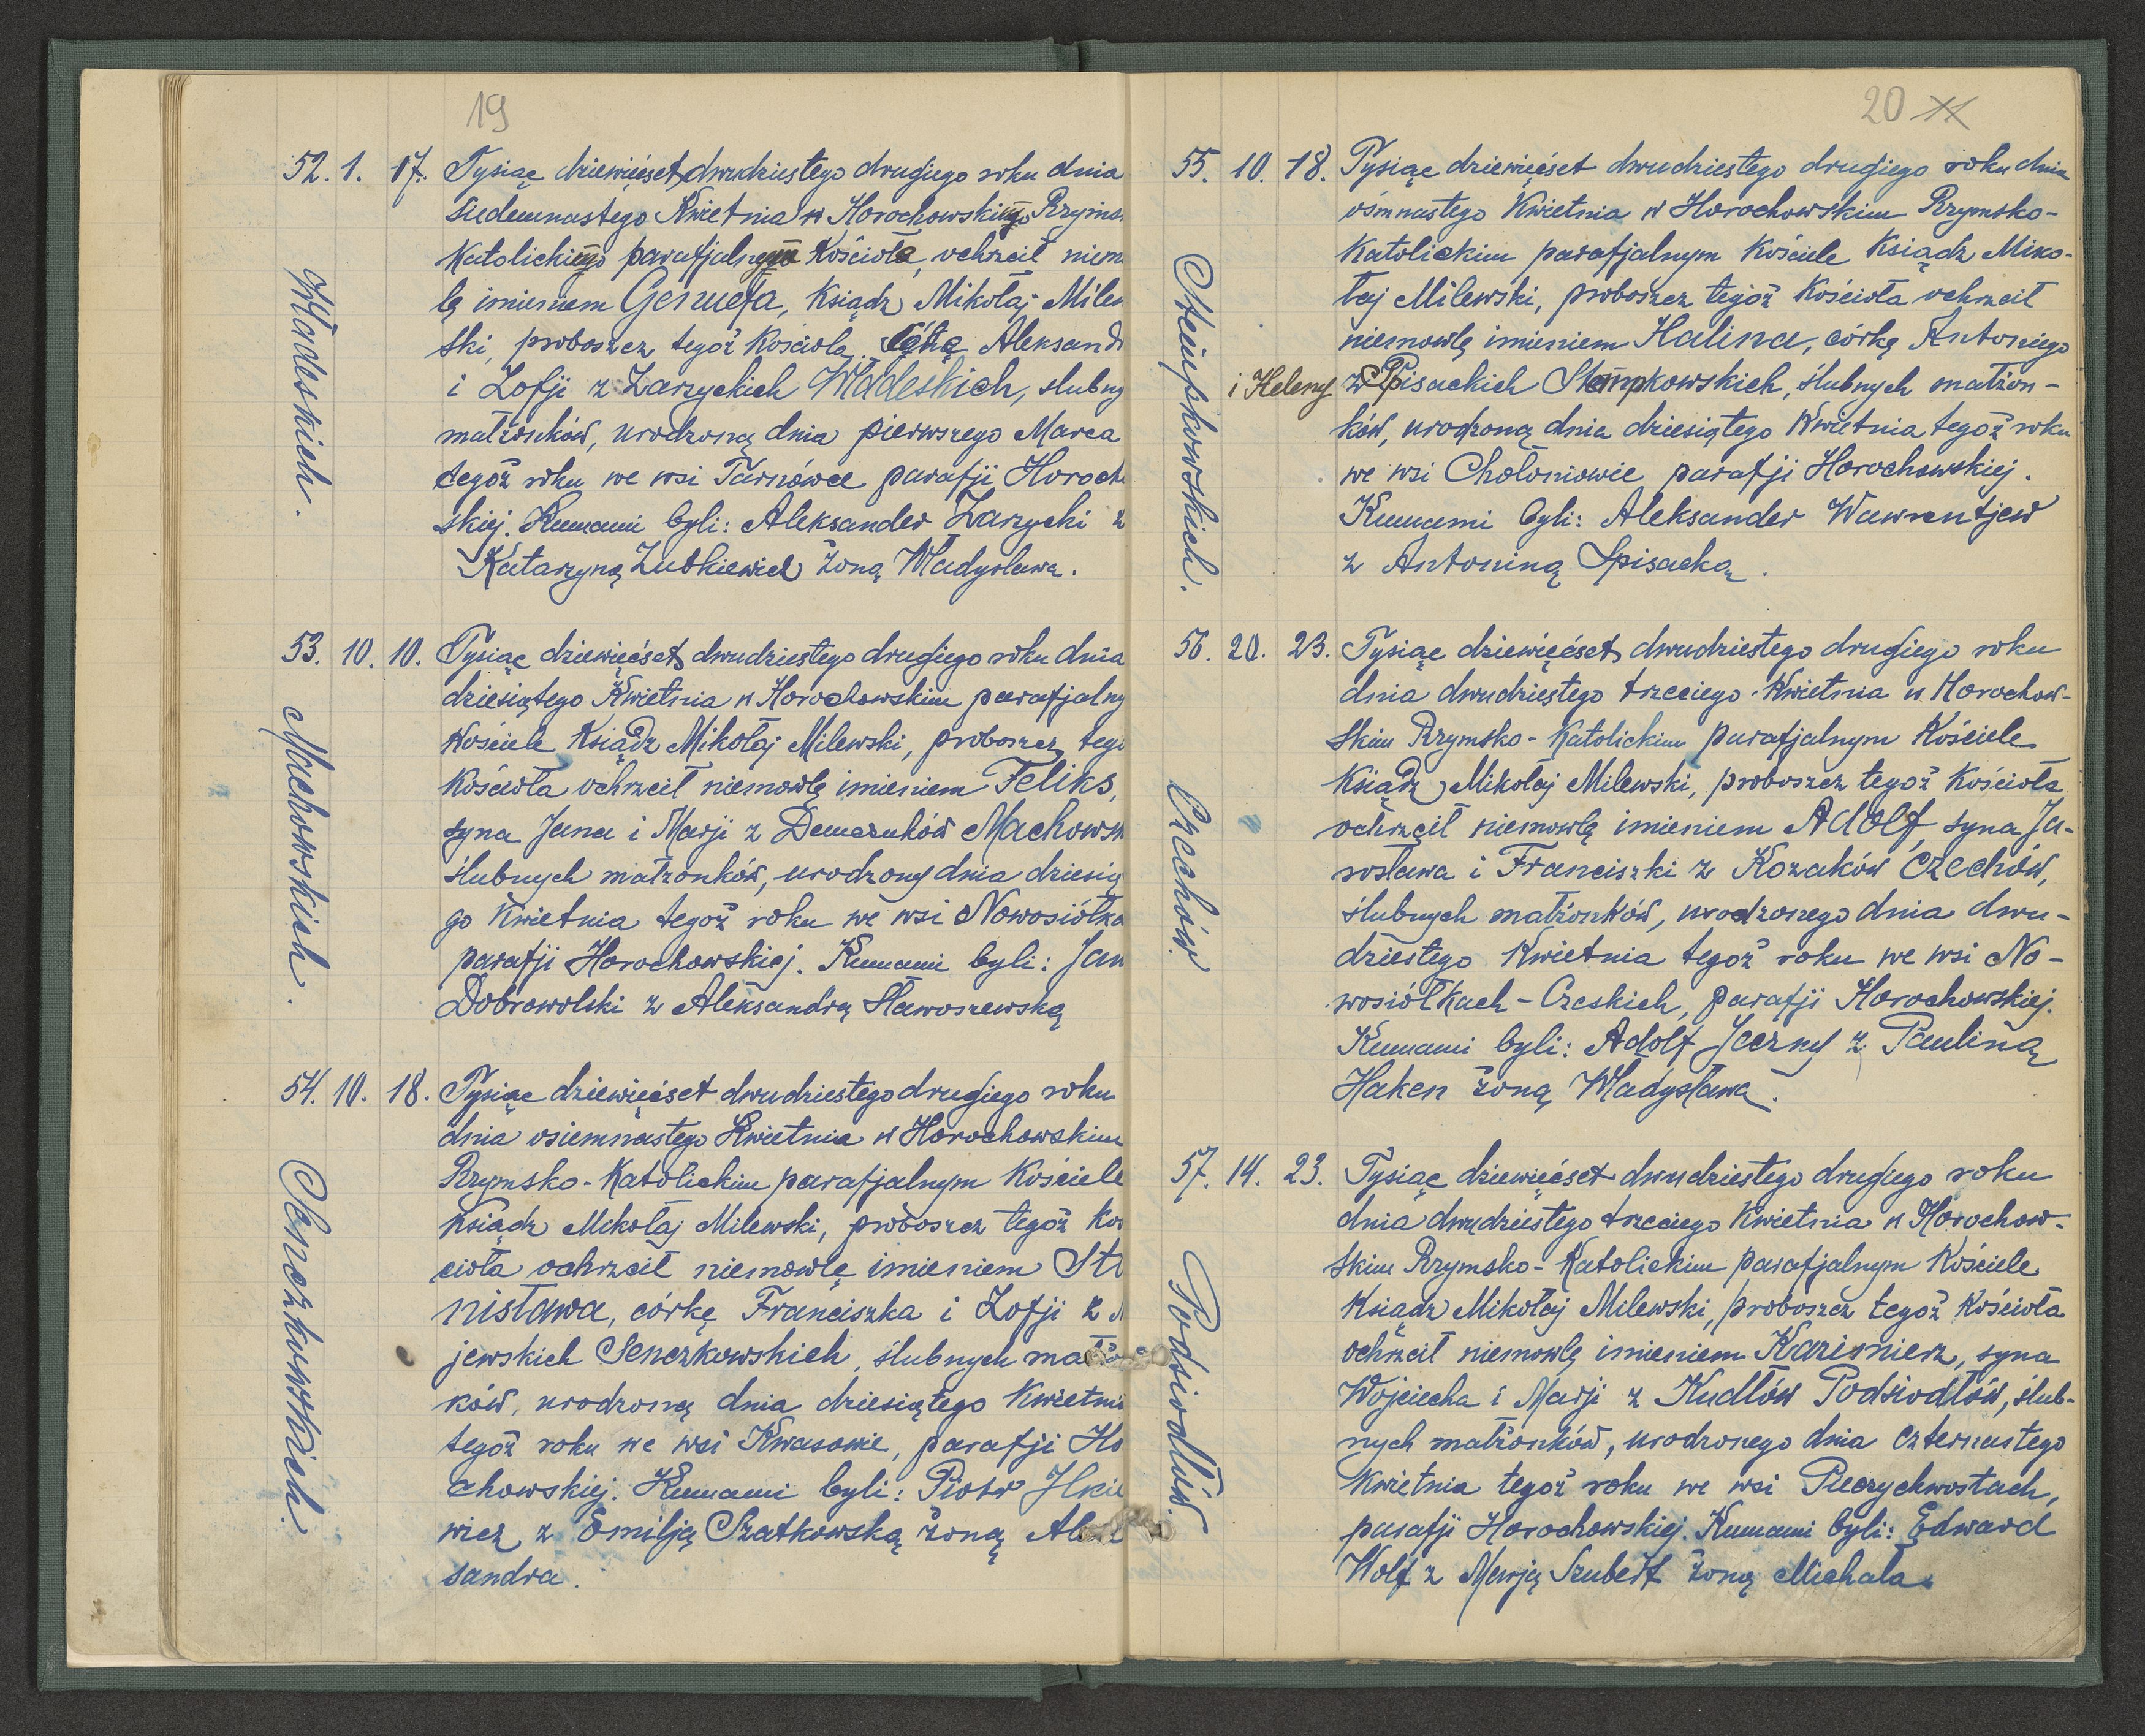 19
52. 1. 17. Tysiąc dziewięćset dwudziestego drugiego roku dnia
siedemnastego Kwietnia w Horochowskim Rzyms
Katolickim parafjalnym Kościele, ochrzcił niem
lę imieniem Genuefa, Ksiądz Mikołaj Milew
ski, proboszcz tegóż Kościoła, córkę Aleksand
i Zofji z Zarzyckich Wladeskich, ślubny
małżonków, urodzoną dnia pierwszego Marca
tegóż roku we wsi Tarnówce parafji Horoch
skiej. Kumami byli: Aleksander Zarzycki z
Katarzyną Zubkiewicz żoną Władysława.
Wladeskich.
53. 10. 10. Tysiąc dziewięćset dwudziestego drugiego roku dnia
dziesiątego Kwietnia w Horochowskim parafjalny
Kościele Ksiądz Mikołaj Milewski, proboszcz tegó
Kościoła ochrzcił niemowlę imieniem Feliks,
syna Jana i Marji z Demczuków Machowsk
ślubnych małżonków, urodzony dnia dziesią
go Kwietnia tegoż roku we wsi Nowosiółka
parafji Horochowskiej. Kumami byli: Jan
Dobrowolski z Aleksandrą Sławoszewską
Machowskich.
54. 10. 18. Tysiąc dziewięćset dwudziestego drugiego roku
dnia osiemnastego Kwietnia w Horochowskim
Rzymsko-Katolickim parafjalnym Kościele
Ksiądz Mikołaj Milewski, proboszcz tegóż Koś
cioła ochrzcił niemowlę imieniem Sta
nisława, córkę Franciszka i Zofji z
jewskich Senczkowskich, ślubnych małżon
ków, urodzoną dnia dziesiątego Kwietnia
tegóż roku we wsi Kwasowie, parafji Ho
chowskiej. Kumami byli: Piotr Ilkie
wicz z Emilją Szatkowską żoną Alek
sandra.
Senczkowskich.
20
55. 10. 18. Tysiąc dziewięćset dwudziestego drugiego roku dnia
ósmnastego Kwietnia w Horochowskim Rzymsko-
Katolickim parafjalnym Kościele Ksiądz Miko-
łaj Milewski, proboszcz tegóż Kościoła ochrzcił
niemowlę imieniem Halina, córkę Antoniego
i Heleny z Spisackich Stempkowskich, ślubnych małżon-
ków, urodzoną dnia dziesiątego Kwietnia tegóż roku
we wsi Chołoniowie parafji Horochowskiej.
Kumami byli: Aleksander Wawrentjew
z Antoniną Spisacką.
Stempkowskich.
56. 20. 23. Tysiąc dziewięćset dwudziestego drugiego roku
dnia dwudziestego trzeciego Kwietnia w Horochow-
skim Rzymsko-Katolickim parafjalnym Kościele
Ksiądz Mikołaj Milewski, proboszcz tegóż Kościoła
ochrzcił niemowlę imieniem Adolf, syna Ja-
rosława i Franciszki z Kozaków Czechów,
ślubnych małżonków, urodzonego dnia dwu-
dziestego Kwietnia tegoż roku we wsi No-
wosiółkach-Czeskich, parafji Horochowskiej.
Kumami byli: Adolf Jeczny z Pauliną
Haken żoną Władysława.
Czechów.
57. 14. 23. Tysiąc dziewięćset dwudziestego drugiego roku
dnia dwudziestego trzeciego Kwietnia w Horochow-
skim Rzymsko-Katolickim parafjalnym Kościele
Ksiądz Mikołaj Milewski, proboszcz tegóż Kościoła
ochrzcił niemowlę imieniem Kazimierz, syna
Wojciecha i Marji z Kudłów Podsiodłów, ślub-
nych małżonków, urodzonego dnia czternastego
Kwietnia tegóż roku we wsi Pieczychwostach,
parafji Horochowskiej. Kumami byli: Edward
Wolf z Marją Szubert żoną Michała.
Podsiodłów.